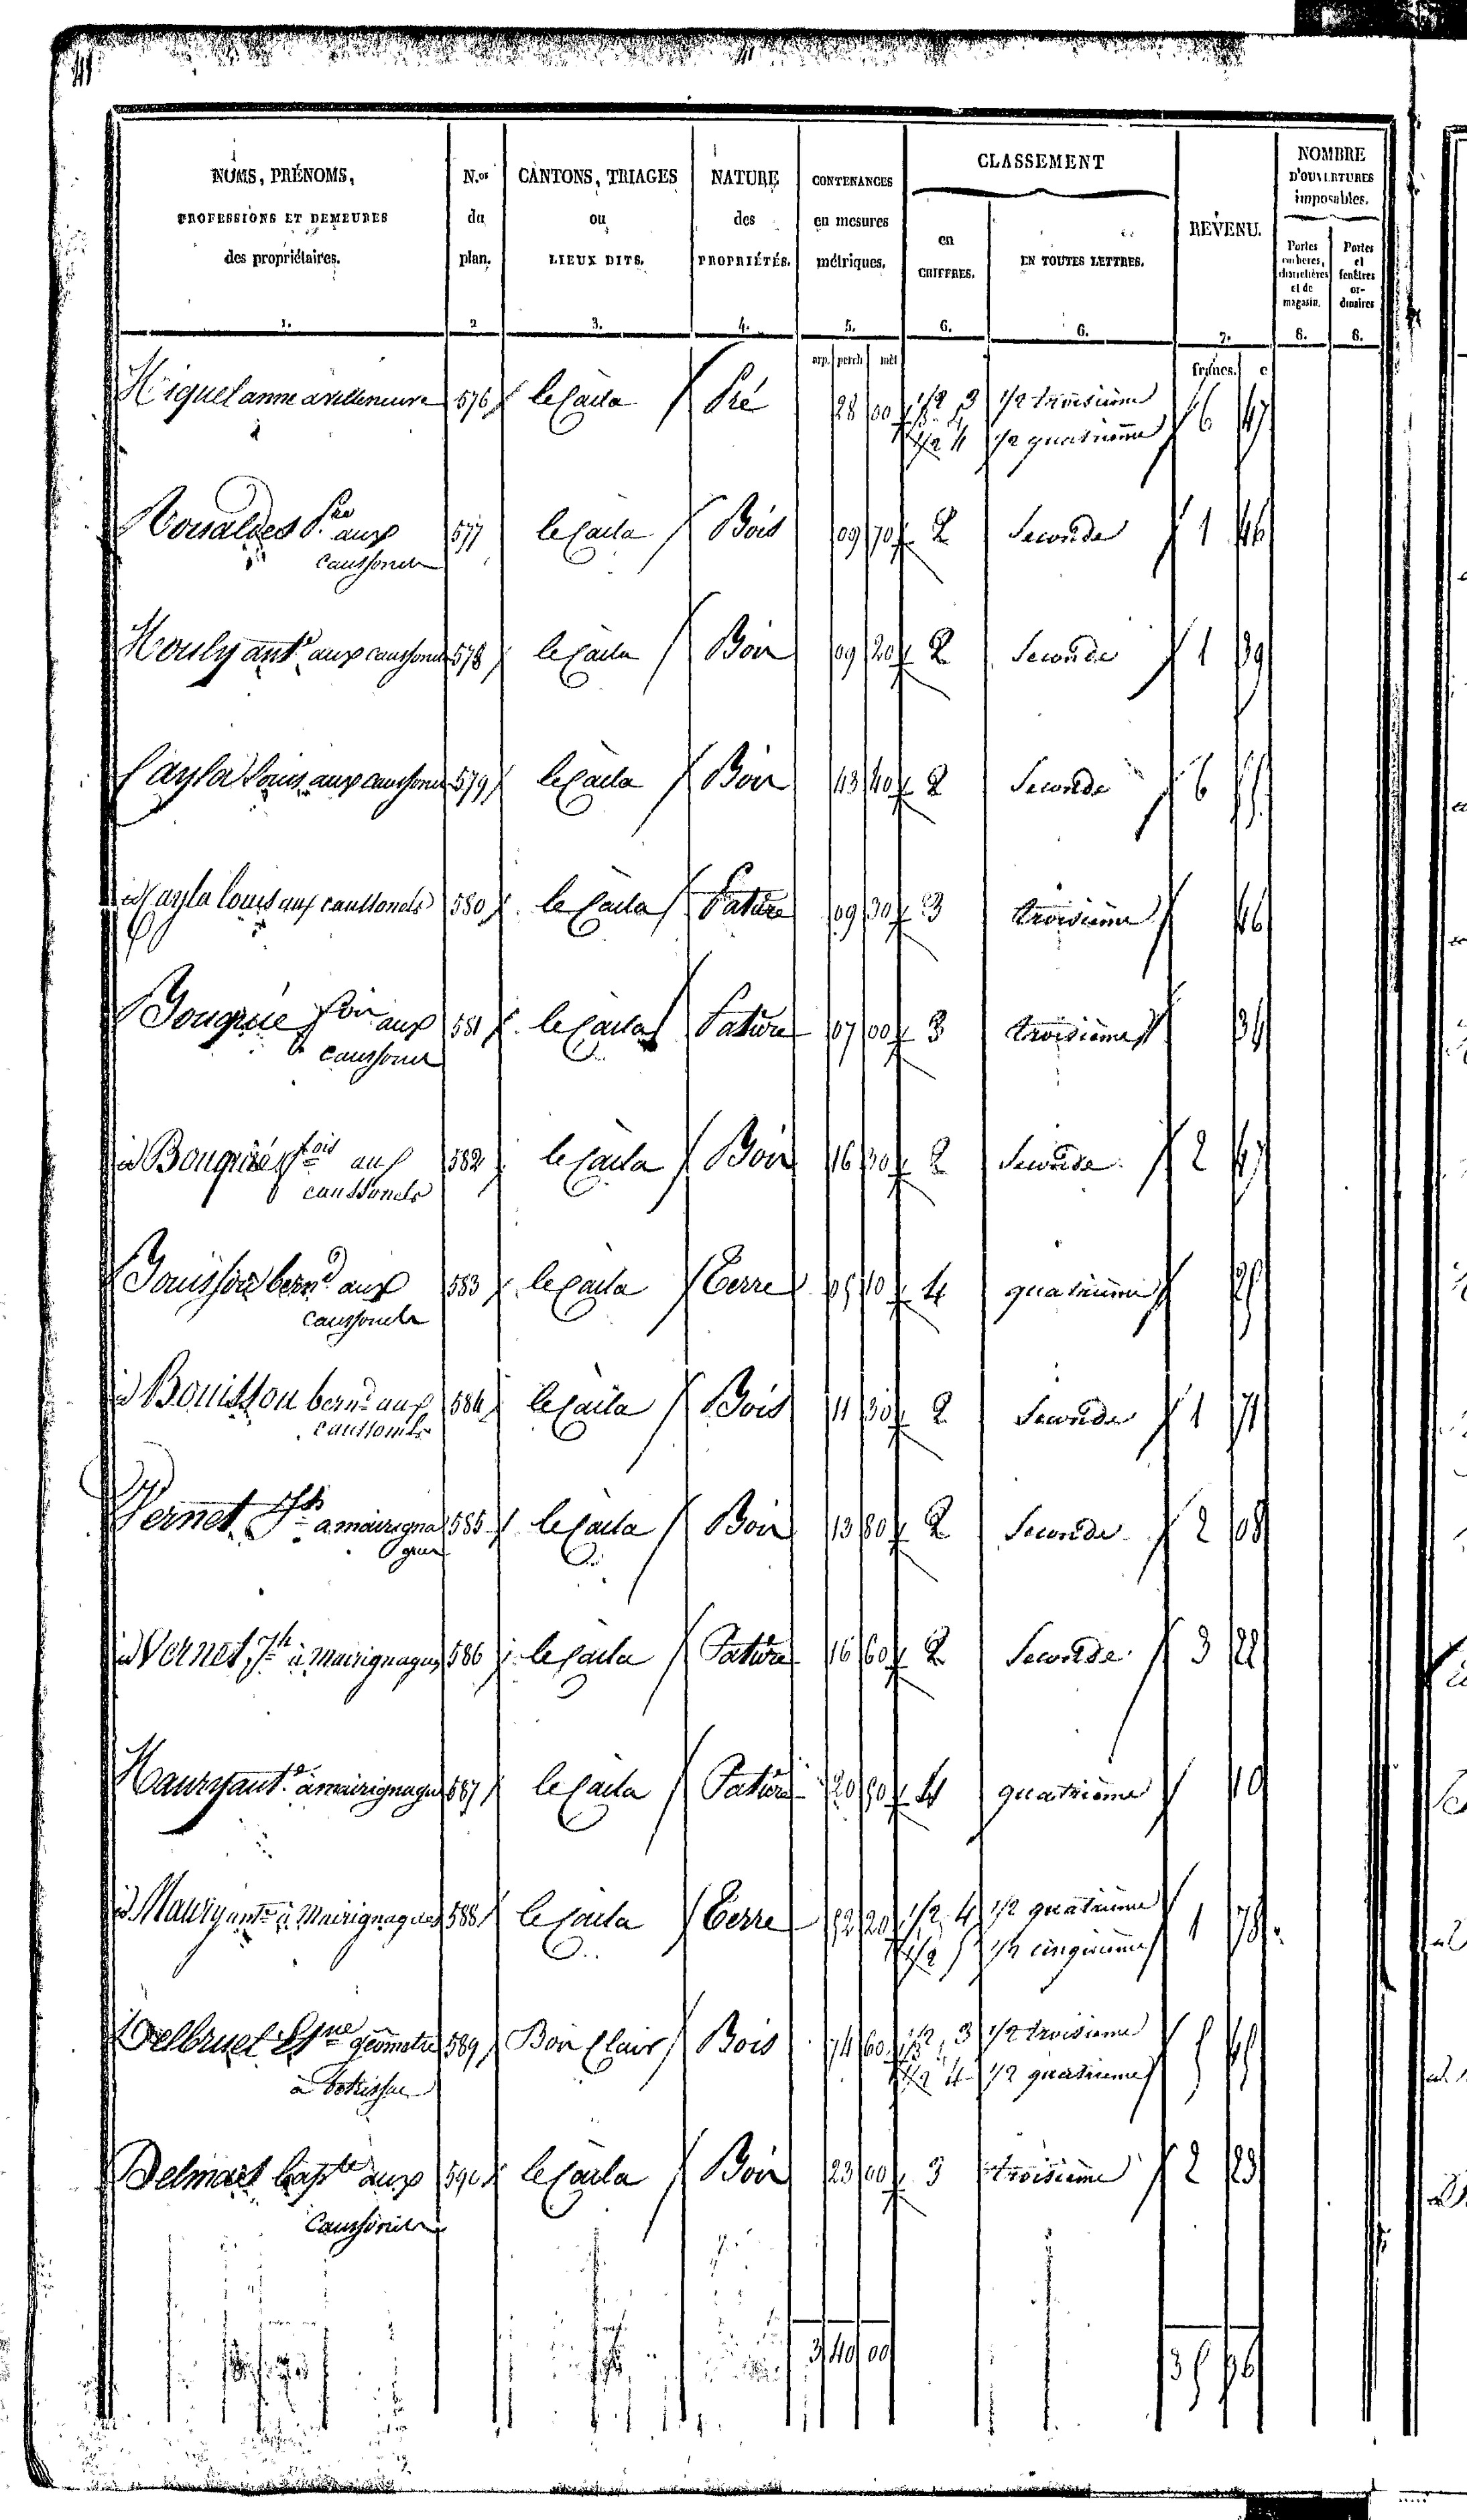 NOMS, PRÉNOMS, PROFESSIONS ET DEMEURES des propriétaires. | N.os du plan. | CANTONS, TRIAGES ou LIEUX DITS. | NATURE des PROPRIÉTÉS. | CONTENANCES en mesures métriques. | CLASSEMENT en CHIFFRES. | EN TOUTES LETTRES. | REVENU. | NOMBRE D'OUVERTURES imposables. Portes cocheres, charretières et de magasin. | Portes et fenêtres ordinaires
1. 2 3. 4. 5. 6. 6. 7. 8. 8.
arp. perch mèt francs. c
Miquel anne a villeneuve 576 le Caïla Pré 28 00 1/2 3 1/2 troisième 6 47
1/2 4 1/2 quatrième
577 le Caïla Bois 09 70 2 Seconde 1 46
Mouly ant.e aux caussonels 578 le Caïla Bois 09 20 2 Seconde 1 39
Cayla Louis aux caussonels 579 le Caïla Bois 43 40 2 Seconde 6 55
id Cayla Louis aux caussonels 580 le Caïla Pature 09 30 3 troisième 46
Bouquié f.ois aux 581 le Caïla Pature 07 00 3 troisième 34
caussonels
id Bouquié f.ois aux 582 le Caïla Bois 16 30 2 Seconde 2 47
caussonels
Bouisson bern.d aux 583 le Caïla Terre 05 10 4 quatrième
caussonels
id Bouisson bern.d aux 584 le Caïla Bois 11 30 2 Seconde 1 71
caussonels
Vernet J.h a mairigna 585 le Caïla Bois 13 80 2 Seconde 2 08
gues
id Vernet J.h à Mairignagues 586 le Caïla Pature 16 60 2 Seconde 3 22
Maury ant.e à mairignagues 587 le Caïla Pature 20 90 4 quatrième 10
id Maury ant.e à Mairignagues 588 le Caïla Terre 52 20 1/2 4 1/2 quatrième 1 78
1/2 5 1/2 cinquième
Delbruel géometre 589 Bon Clair Bois 74 60 1/2 3 1/2 troisieme 5 45
1/2 4 1/2 quatrieme
Delmas bap.te aux 590 le Caïla Bois 23 00 3 troisième 2 23
Caussonels
3 40 00 35 96